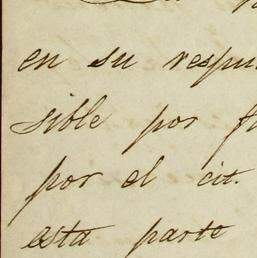 en su respu
sible por f
por el cit.
esta parte